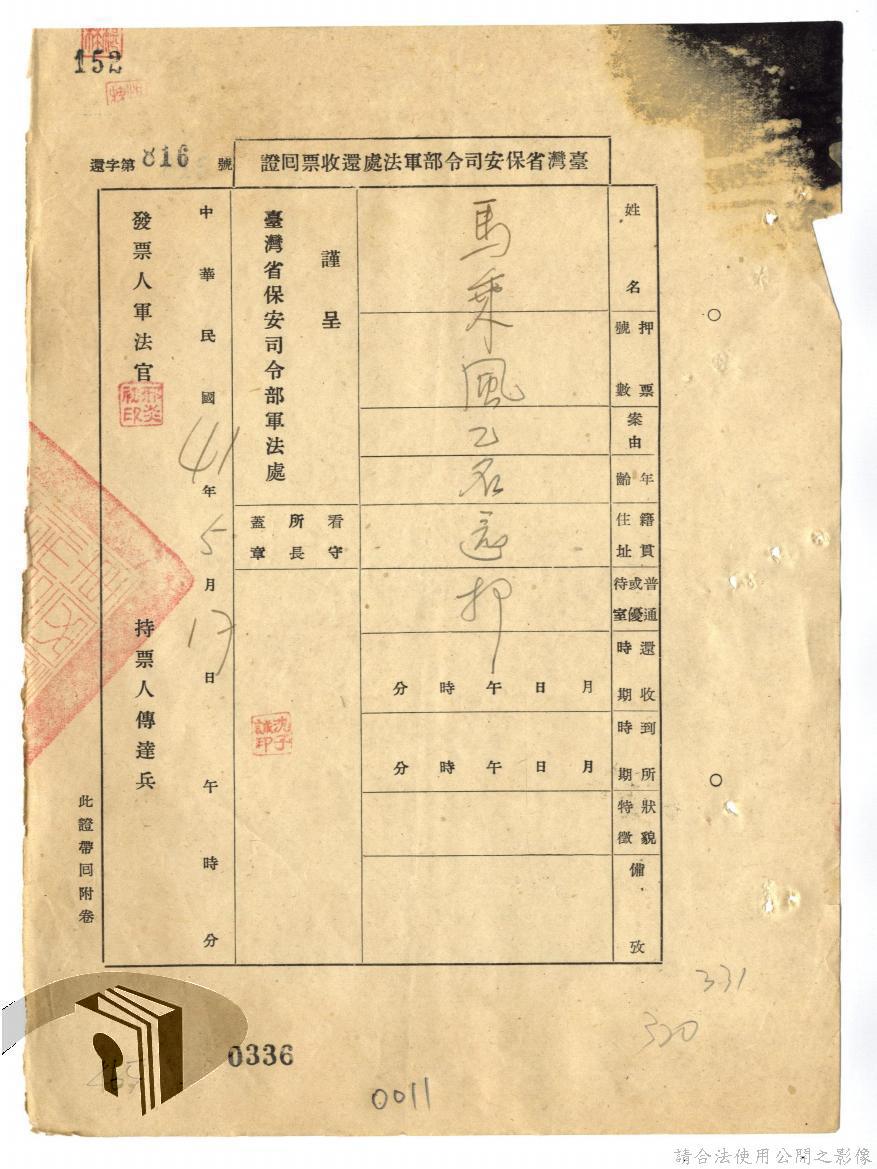 152
臺灣省保安司令部軍法處還收票回證
還字第816號
姓名
押票號數
案由
年齡
籍貫住址
普通或優待室
還收時期
到所時期
狀貌特徵
備攷
馬乘風乙名還押
月 日 午 時 分
月 日 午 時 分
謹呈
臺灣省保安司令部軍法處
看守所長蓋章
沈子誠印
中華民國41年5月17日午時分
發票人軍法官
持票人傳達兵
此證帶回附卷
331
320
0336
0011
請合法使用公開之影像